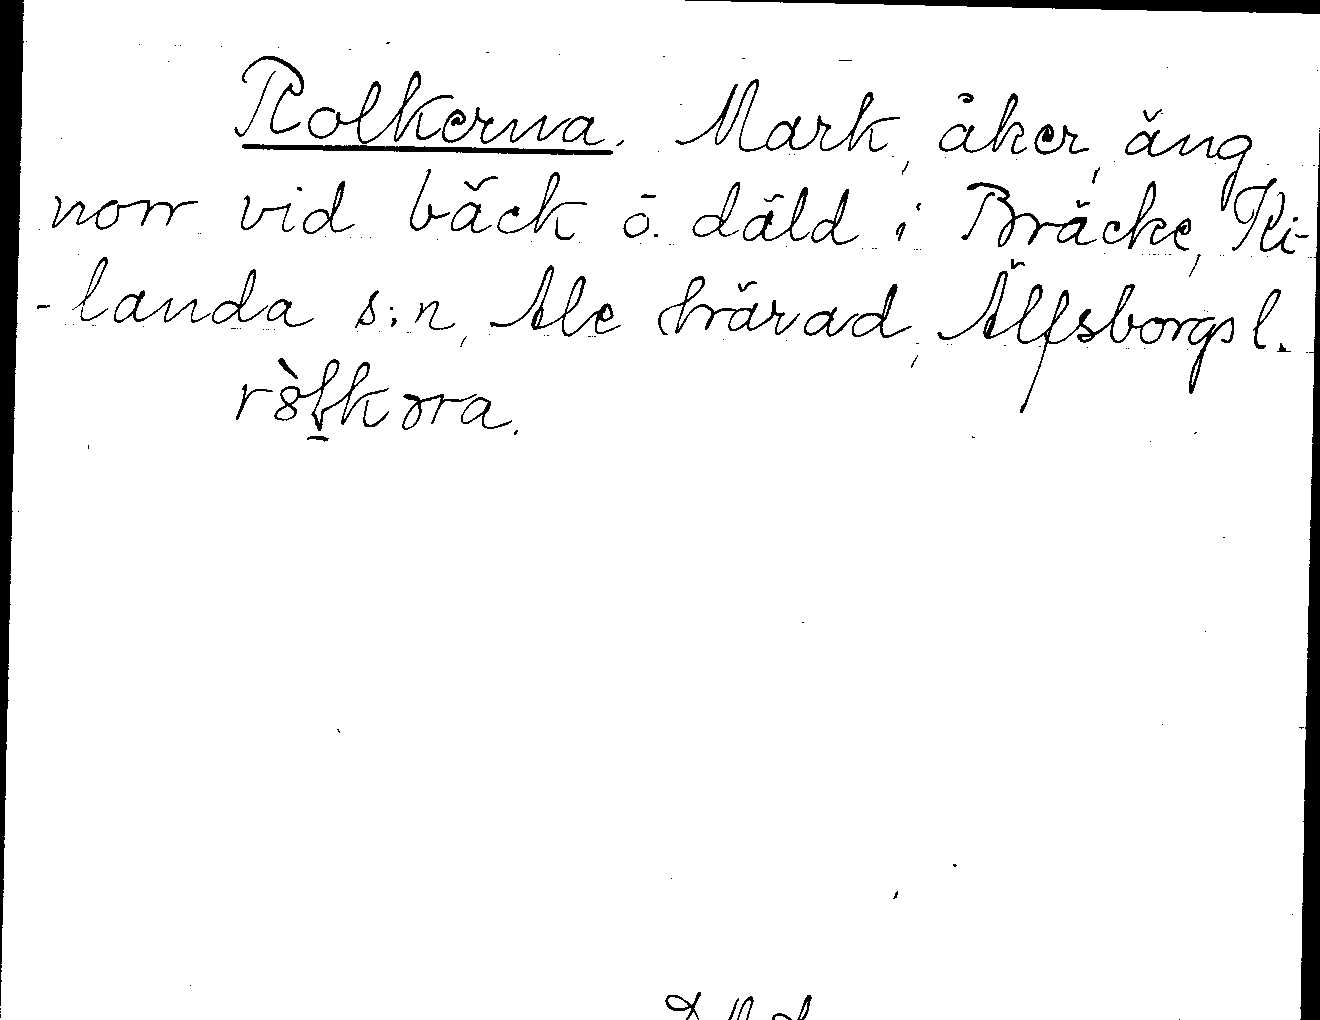 Rolkerna. Mark, åker, äng
norr vid bäck o. däld i Bräcke, Ki-
-landa s:n, Ale härad, Älfsborgs l.